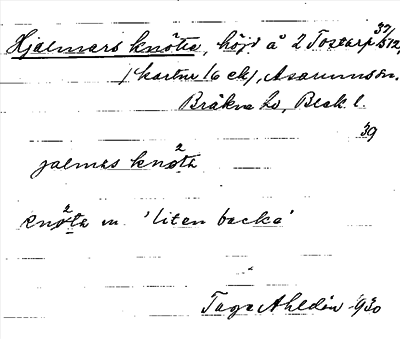 Hjalmars knöta, höjd å 2 Tostarp 37/512,
(kartur 16 ek), Asarums sn.
Bräkne hd, Blek. l.
39
jalmas knöta
2
knöta m. 'liten backe'
2
Tage Ahldén 1930